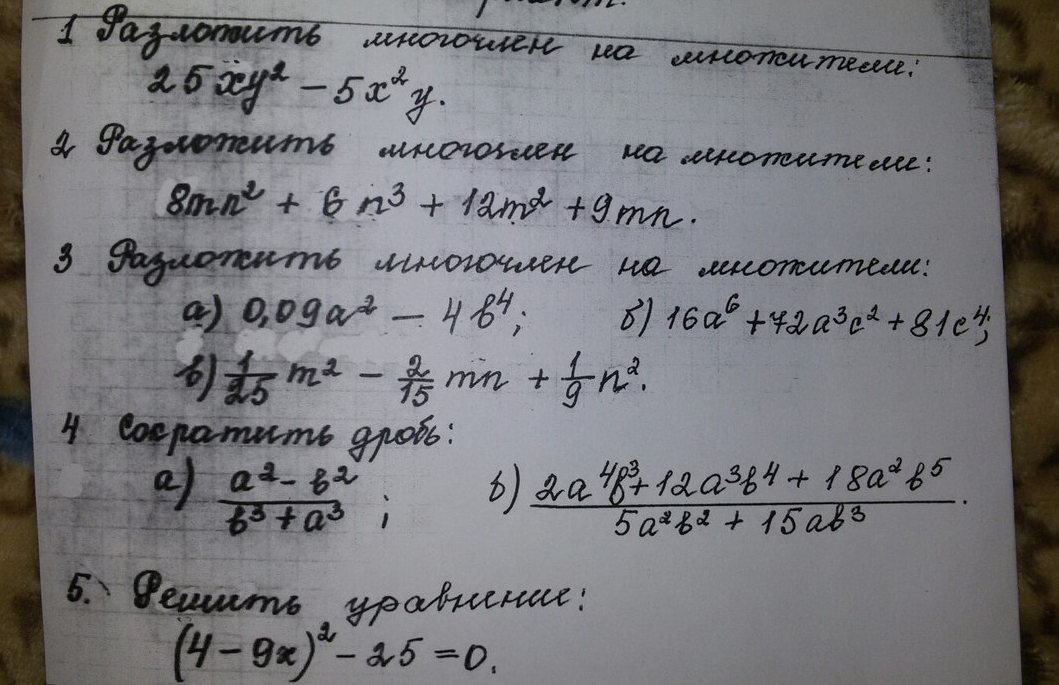 1 Разложить многочлен на множители:
25xy² - 5x²y.
2 Разложить многочлен на множители:
8mn² + 6n³ + 12m² + 9mn.
3 Разложить многочлен на множители:
а) 0,09a² - 4b⁴; б) 16a⁶ + 72a³c² + 81c⁴;
в) 1/25 m² - 2/15 mn + 1/9 n².
4 Сократить дробь:
а) (a² - b²)/(b³ + a³); в) (2a⁴b³ + 12a³b⁴ + 18a²b⁵)/(5a²b² + 15ab³).
5. Решить уравнение:
(4 - 9x)² - 25 = 0.